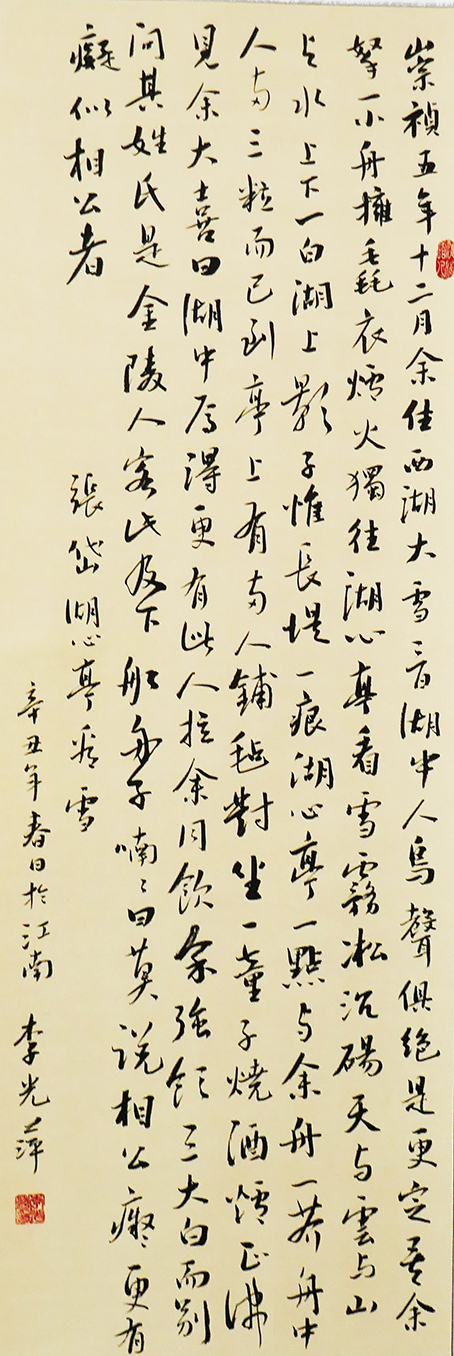 崇禎五年十二月余住西湖大雪三日湖中人鳥聲俱絕是更定矣余
拏一小舟擁毳衣爐火獨往湖心亭看雪霧凇沆碭天与雲与山
与水上下一白湖上影子惟長堤一痕湖心亭一點与余舟一芥舟中
人两三粒而已到亭上有两人鋪氈對坐一童子燒酒爐正沸
見余大喜曰湖中焉得更有此人拉余同飲余強飲三大白而别
问其姓氏是金陵人客此及下船舟子喃〻曰莫说相公癡更有
癡似相公者
張岱湖心亭看雪
辛丑年春日於江南 李光萍